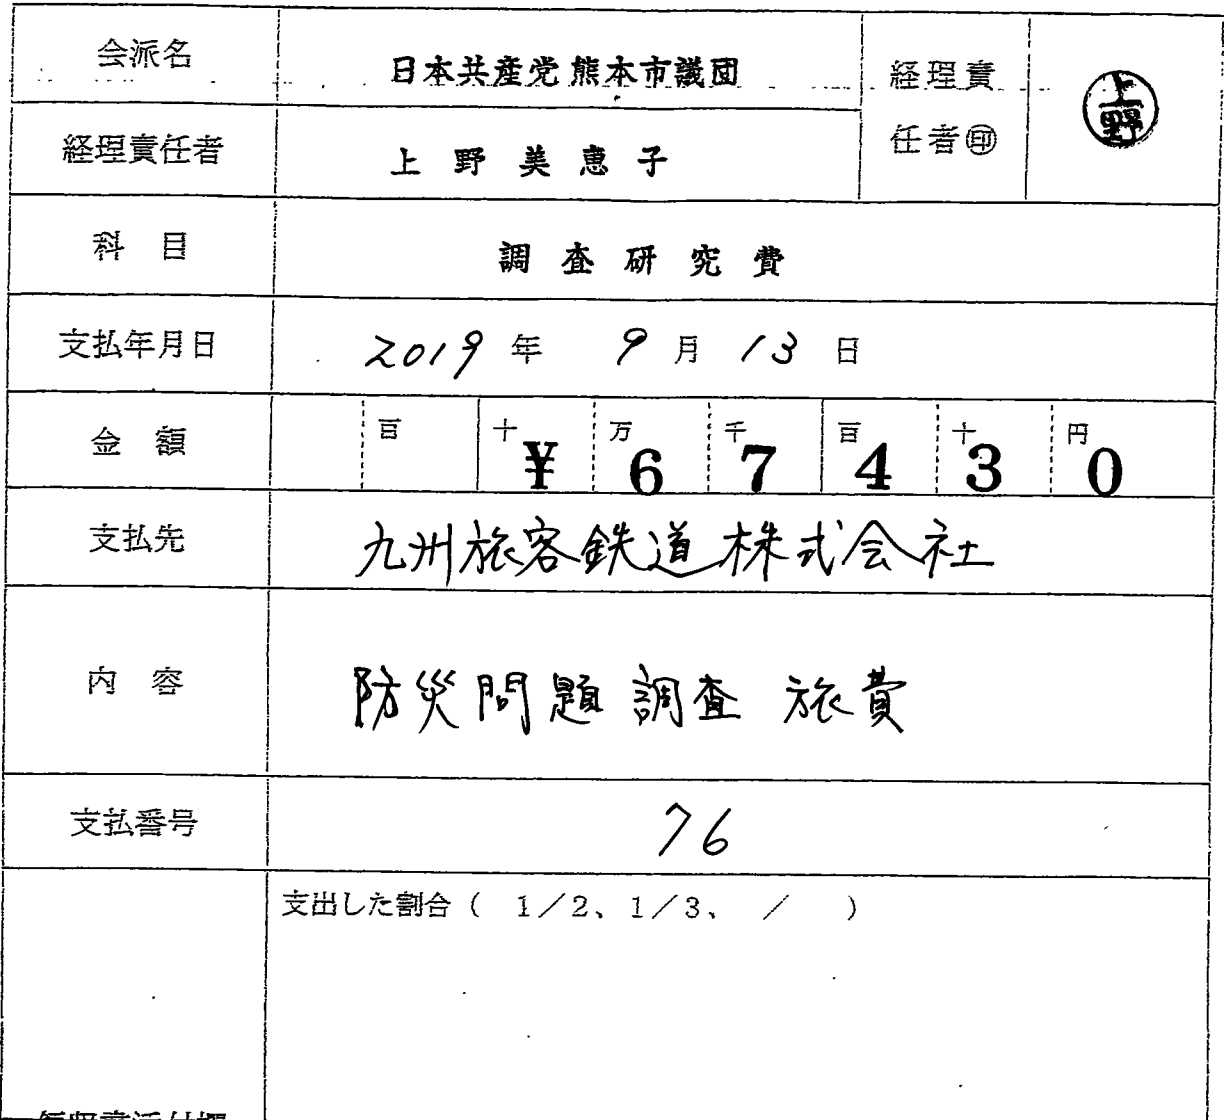 会派名 日本共産党熊本市議団 経理責任者㊞ 上野
経理責任者 上野美恵子
科目 調査研究費
支払年月日 2019年 9月 13日
金額 百 十 万 千 百 十 円
¥67430
支払先 九州旅客鉄道株式会社
内容 防災問題調査 旅費
支払番号 76
支出した割合( 1/2、1/3、 / )